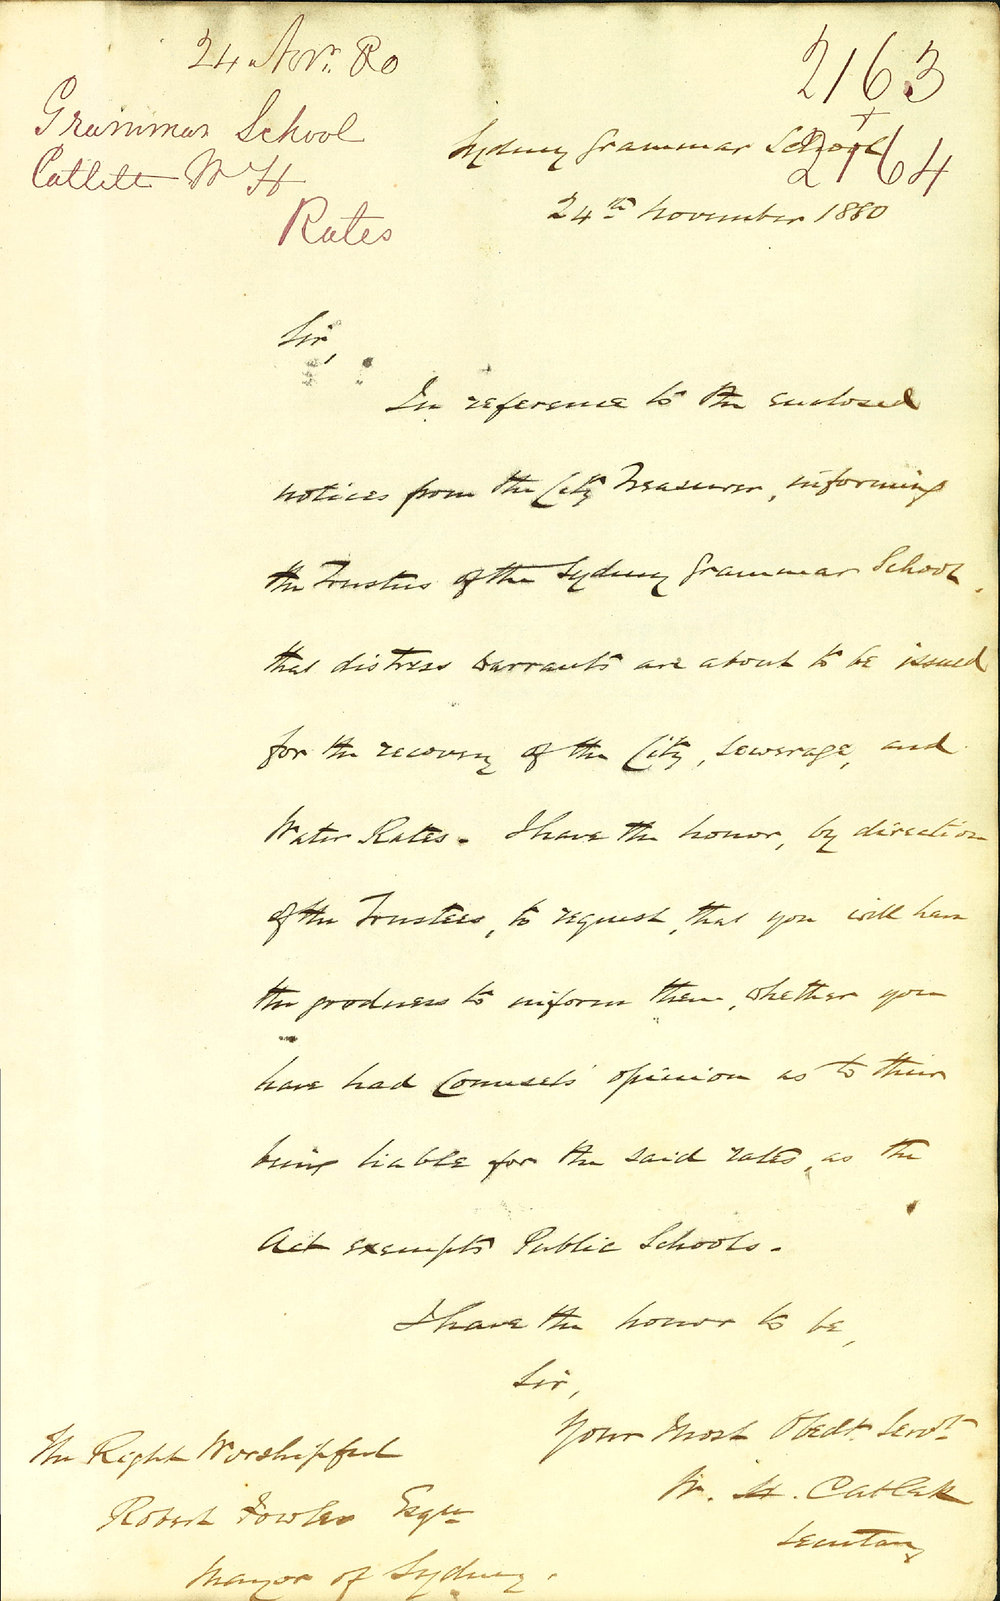 24 Novr. 80
2163
Grammar School
Catlett W H
Rates
2164
Sydney Grammar School
24th November 1880
Sir,
In reference to the enclosed
notices from the City Treasurer, informing
the Trustees of the Sydney Grammar School,
that distress warrants are about to be issued
for the recovery of the City, Sewerage, and
Water Rates. I have the honor, by direction
of the Trustees, to request, that you will have
the goodness to inform them, whether you
have had Counsels' opinion as to their
being liable for the said rates, as the
Act exempts Public Schools.
I have the honor to be,
Sir,
Your Most Obedt. Servt.
W. H. Catlett
Secretary
The Right Worshipful
Robert Fowler Esqre
Mayor of Sydney.